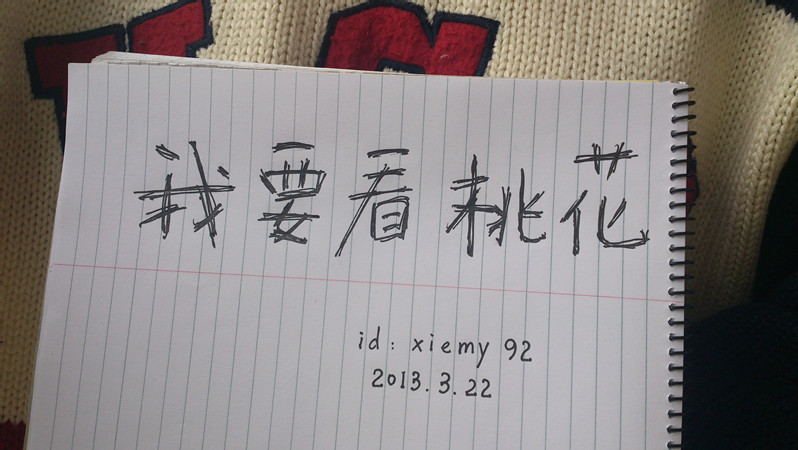 我要看桃花
id: xiemy 92
2013.3.22